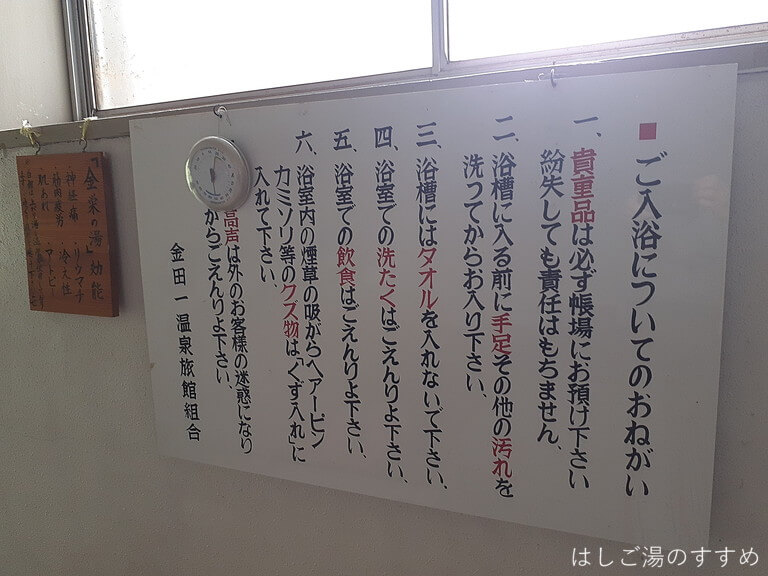 ■ ご入浴についてのおねがい
一、貴重品は必ず帳場にお預け下さい
紛失しても責任はもちません、
二、浴槽に入る前に手足その他の汚れを
洗ってからお入り下さい、
三、浴槽にはタオルを入れないで下さい、
四、浴室での洗たくはごえんりよ下さい、
五、浴室での飲食はごえんりよ下さい、
六、浴室内の煙草の吸がらヘアーピン
カミソリ等のクズ物は「くず入れ」に
入れて下さい、
高声は外のお客様の迷惑になり
からごえんりよ下さい、
金田一温泉旅館組合
「金栄の湯」効能
・神経痛・リウマチ
・筋肉疲労・冷え性
・肌あれ・アトピー
はしご湯のすすめ